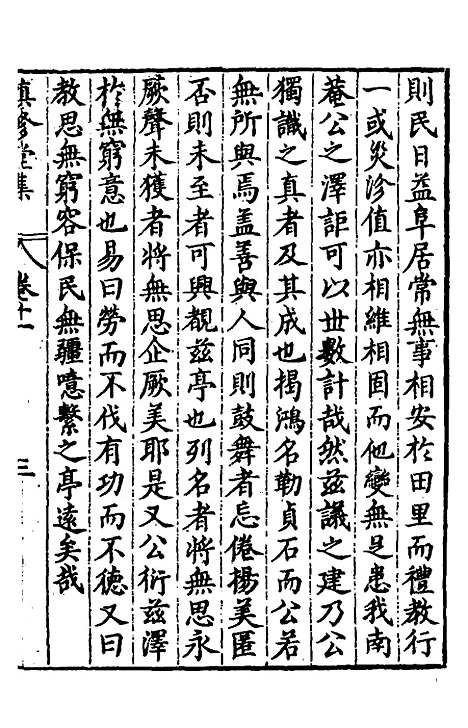 則民日益阜居常無事相安於田里而禮教行
一或災沴值亦相維相固而他變無是患我南
菴公之澤詎可以丗數計哉然茲議之建乃公
獨識之真者及其成也揭鴻名勒貞石而公若
無所與焉盖善與人同則鼓舞者忘倦楊美匿
否則未至者可興覩茲亭也列名者將無思永
厥聲未獲者將無思企厥美耶是又公衍茲澤
於無窮意也易曰勞而不伐有功而不德又曰
教思無窮容保民無疆噫繫之亭遠矣哉
慎修堂集
卷十一
三